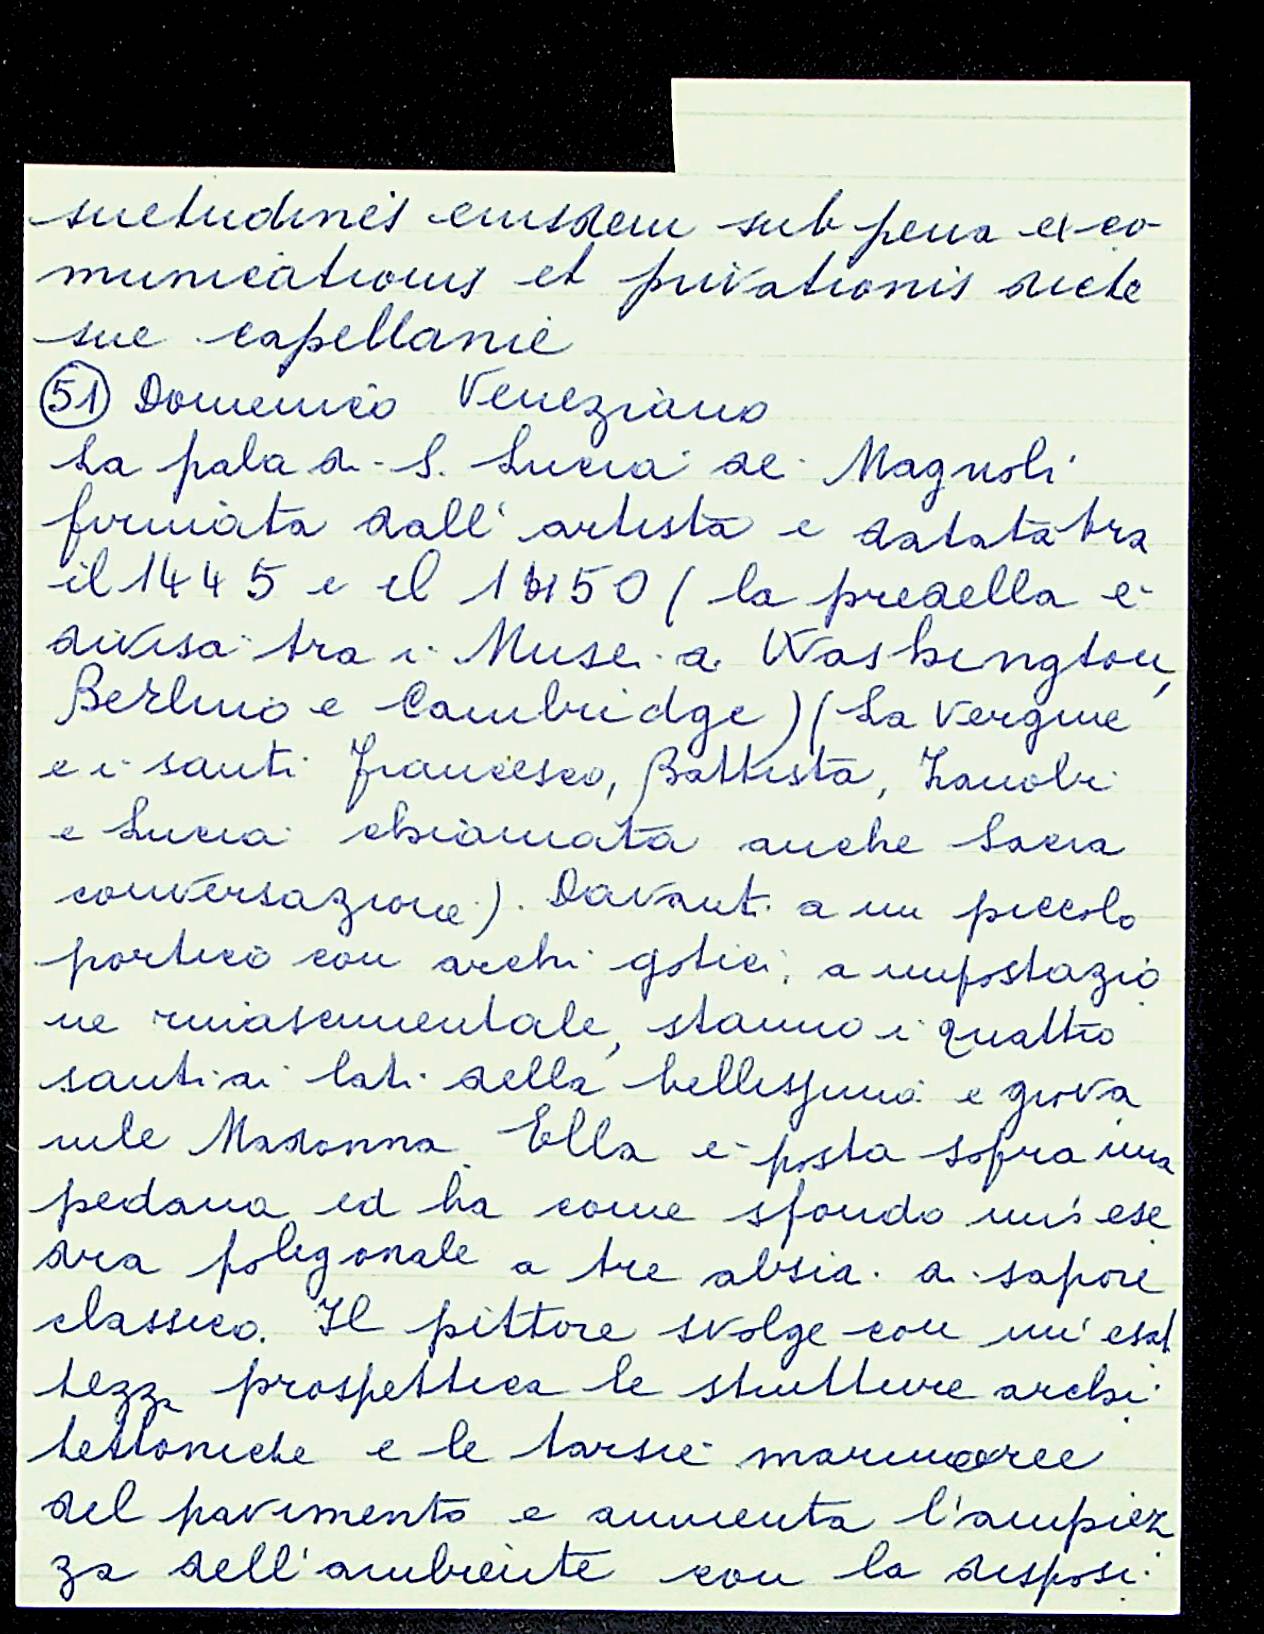 suetudinis eiusdem sub pena exco-
municationis et privationis dicte
sue capellanie
51 Domenico Veneziano
La pala di S. Lucia de Magnoli
firmata dall'artista e datata tra
il 1445 e il 1450 (la predella è
divisa tra i Musei di Washington,
Berlino e Cambridge) (La Vergine
e i santi Francesco, Battista, Zanobi
e Lucia chiamata anche Sacra
conversazione). Davanti a un piccolo
portico con archi gotici, a impostazio
ne rinascimentale, stanno i quattro
santi ai lati della bellissima e giova
nile Madonna. Ella è posta sopra una
pedana ed ha come sfondo un'ese
dra poligonale a tre absidi di sapore
classico. Il pittore svolge con un'esat
tezza prospettica le strutture archi
tettoniche e le tarsie marmoree
del pavimento e aumenta l'ampiez
za dell'ambiente con la disposi